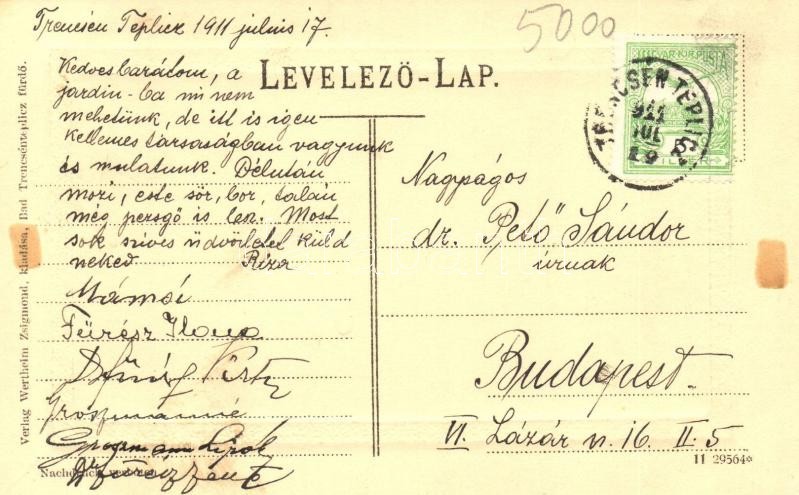 Trencsén Teplicz 1911 július 17.
5000
Kedves barátom, a
jardin-ba mi nem
mehetünk, de itt is igen
kellemes társaságban vagyunk
és mulatunk. Délután
mozi, este sör, bor, talán
még pezsgő is lesz. Most
sok szíves üdvözletet küld
neked Riza
Mámsi
Fürész Ilona
Groszmanné
Groszmann
LEVELEZŐ-LAP.
MAGYAR KIR. POSTA
TRENCSÉN-TEPLIC
911
JUL
19
FILLÉR
Nagyságos
dr. Pető Sándor
úrnak
Budapest.
VI. Lázár u. 16. II. 5
Verlag Wertheim Zsigmond, kiadása, Bad Trencsénteplicz fürdő.
Nachdruck verboten
11 29564*